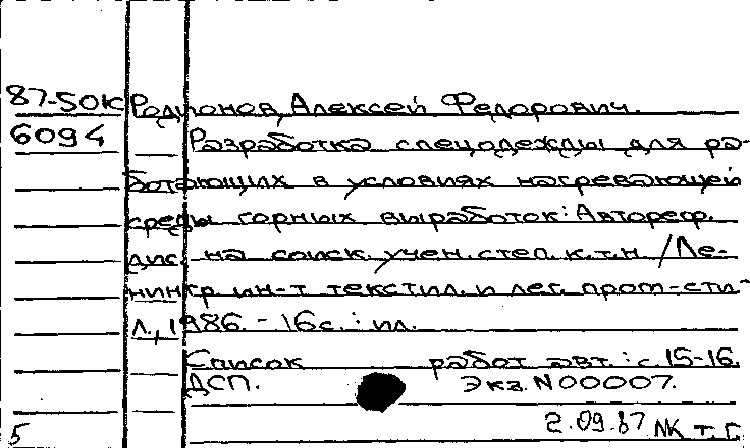 87-50к Родионов, Алексей Федорович.
6094 Разработка спецодежды для ра-
ботающих в условиях нагревающей
среды горных выработок: Автореф.
дис. на соиск. учен. степ. к.т.н. /Ле-
нингр. ин-т текстил. и лег. пром-сти-
Л., 1986. - 16с. : ил.
Список работ авт.: с. 15-16.
ДСП. Экз. N 00007.
5 2.09.87 NK т. Г.